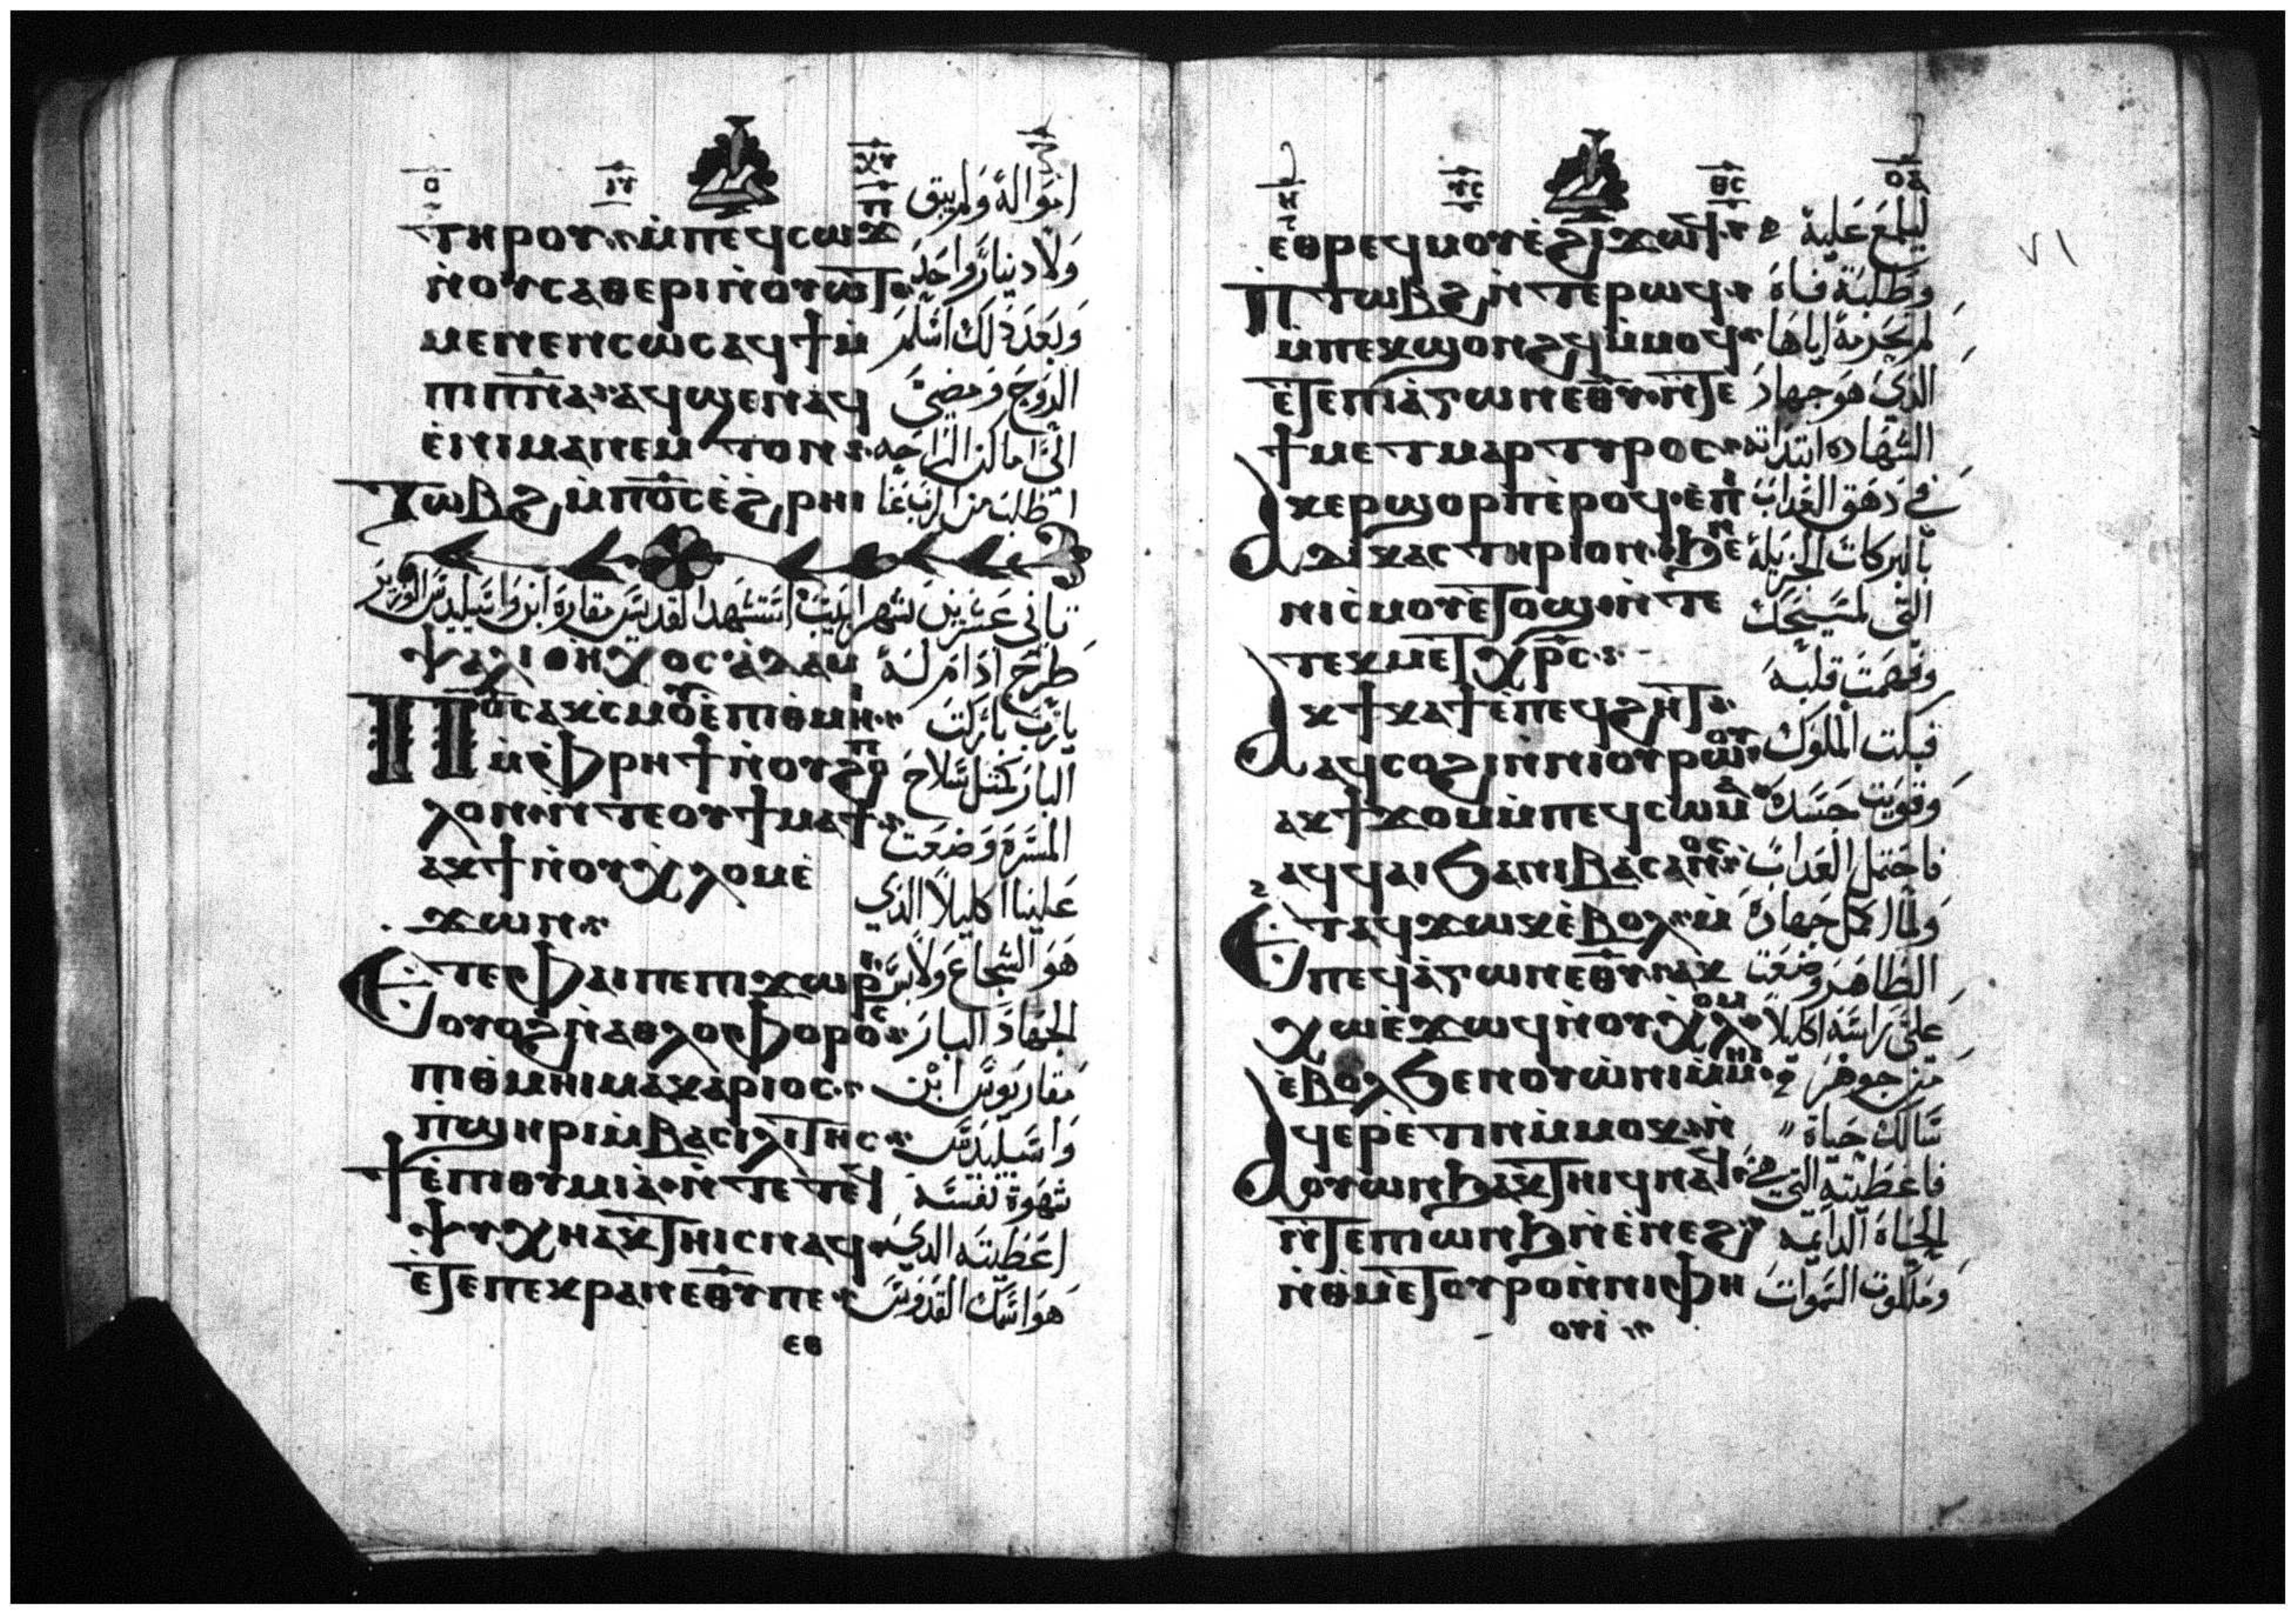 ⲧⲏⲣⲟⲩ ⲙ̀ⲡⲉϥⲥⲱϫⲡ اموالهُ ولم يبق
ⲛ̀ⲟⲩⲥⲁⲑⲉⲣⲓ ⲛ̀ⲟⲩⲱⲧ ولا دينارً واحد
ⲙⲉⲛⲉⲛⲥⲱⲥ ⲁϥϯ ⲙ̀ وبعد ذلك اسلم
ⲡⲓⲡ̅ⲛ̅ⲁ̅ ⲁϥϣⲉⲛⲁϥ الروح ومضي
ⲉ̀ⲛⲓⲙⲁⲛⲉⲙⲧⲟⲛ الي اماكن الراحه
ⲧⲱⲃϩ ⲙ̀ⲡⲟ̅ⲥ̅ ⲉ̀ϩⲣⲏⲓ اطلب من الرب عنا
تاني عشرين لشهر ابيب استشهد القديس مقاره ابن واسيليدس الوزير
ⲯⲁⲗⲓ ⲟⲛ ⲏⲭⲟⲥ ⲁⲇⲁⲙ طرح ادام له
ⲡⲟ̅ⲥ̅ ⲁⲕⲥⲙⲟⲩ ⲉ̀ⲡⲓⲑⲙⲏⲓ يارب باركت
ⲙ̀ⲫⲣⲏϯ ⲛ̀ⲟⲩϩⲟⲡ البار كمثل سلاح
ⲗⲟⲛ ⲛ̀ⲧⲉ ⲟⲩϯⲙⲁϯ المسره وضعت
ⲁⲕϯ ⲛ̀ⲟⲩⲭⲗⲟⲙ ⲉ̀ علينا اكليلاً الذي
ϫⲱⲛ
ⲉⲧⲉ ⲫⲁⲓ ⲡⲉ ⲡⲓϫⲱⲣⲓ هو الشجاع ولابس
ⲟⲩⲟϩ ⲛ̀ⲁⲑⲗⲟⲫⲟⲣⲟⲥ الجهاد البار
ⲡⲓⲑⲙⲏⲓ ⲙⲁⲕⲁⲣⲓⲟⲥ مقاريوس ابن
ⲡ̀ϣⲏⲣⲓ ⲙ̀ⲃⲁⲥⲓⲗⲓⲧⲏⲥ واسيليدس
ϯⲉ̀ⲡⲓⲑⲩⲙⲓⲁ ⲛ̀ⲧⲉ ⲧⲉϥ شهوة نفسه
ⲯⲩⲭⲏ ⲁⲕⲧⲏⲓⲥ ⲛⲁϥ اعطيته الذي
ⲉ̀ⲧⲉ ⲡⲉⲕⲣⲁⲛ ⲉⲑⲩ ⲡⲉ هو اسمك القدوس
ⲉⲑ
ⲉⲑⲣⲉϥⲙⲟⲩⲉ̀ ϩⲓϫⲱϥ ليلمع عليه
ⲡ̀ⲧⲱⲃϩ ⲛ̀ⲧⲉ ⲣⲱϥ وطلبة فاه
ⲙ̀ⲡⲉⲕϣⲟⲛϩϥ ⲙ̀ⲙⲟϥ لم تحرمه اياها
ⲉ̀ⲧⲉ ⲡⲓⲁ̀ⲅⲱⲛ ⲉⲑⲩ ⲛ̀ⲧⲉ الذي هو جهاد
ϯⲙⲉⲧⲙⲁⲣⲧⲩⲣⲟⲥ الشهاده ابتداته
ⲁⲕⲉⲣϣⲟⲣⲡ ⲉ̀ⲣⲟϥ ⲉ̀ⲡⲓ في دهق العداب
ⲇⲓⲕⲁⲥⲧⲏⲣⲓⲟⲛ ϧⲉⲛ بالبركات الجزيله
ⲛⲓⲥ̀ⲙⲟⲩ ⲉ̀ⲧⲟϣ ⲛ̀ⲧⲉ التي لمسيحك
ⲧⲉⲕⲙⲉⲧⲭⲣ̅ⲥ̅ وفهمت قلبه
ⲁⲕϯⲕⲁϯ ⲉ̀ⲡⲉϥϩⲏⲧ
ⲁϥⲥⲟϩⲓ ⲛ̀ⲛⲓⲟⲩⲣⲱⲟⲩ فبكت الملوك
ⲁⲕϯϫⲟⲙ ⲙ̀ⲡⲉϥⲥⲱⲙⲁ وقويت جسده
ⲁϥϥⲁⲓ ϧⲁ ⲛⲓⲃⲁⲥⲁⲛⲟⲥ فاحتمل العداب
ⲉⲧⲁϥϫⲱⲕ ⲉ̀ⲃⲟⲗ ⲙ̀ ولما اكمل جهاده
ⲡⲉϥⲁ̀ⲅⲱⲛ ⲉⲑⲩ ⲁⲕ الطاهر وضعت
ⲭⲱ ⲉ̀ϫⲱϥ ⲛ̀ⲟⲩⲭⲗⲟⲙ علي راسه اكليلاً
ⲉ̀ⲃⲟⲗ ϧⲉⲛ ⲟⲩⲱ̀ⲛⲓ ⲙ̀ⲙⲏⲓ من جوهر
ⲁϥⲉⲣⲉ̀ⲧⲓⲛ ⲙ̀ⲙⲟⲕ ⲛ̀ سالك حياة
ⲟⲩⲱⲛϧ ⲁⲕⲧⲏⲓϥ ⲛⲁϥ فاعطيته التي هي
ⲛ̀ⲧⲉ ⲡⲓⲱⲛϧ ⲛ̀ⲉ̀ⲛⲉϩ الحياة الدايمه
ⲛ̀ⲑⲙⲉⲧⲟⲩⲣⲟ ⲛ̀ⲛⲓⲫⲏ وملكوت السموات
ⲟⲩⲓ̀
٧١